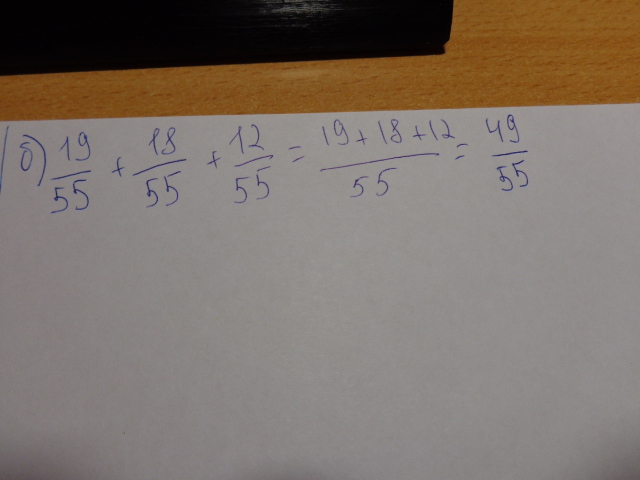 б) 19/55 + 18/55 + 12/55 = 19+18+12/55 = 49/55